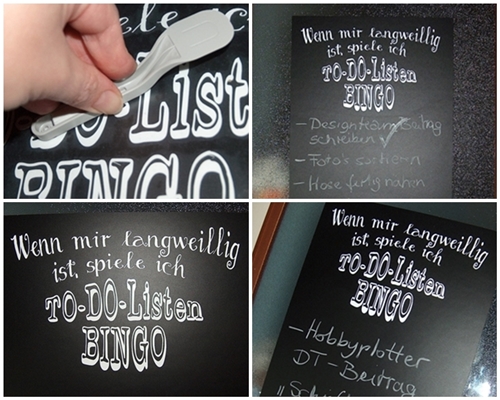 ele ic
DO-List
BINGO
Wenn mir langweillig
ist, spiele ich
TO-DO-Listen
BINGO
- Designteam Beitrag
schreiben ✓
- Foto's sortieren
- Hose fertig nähen
Wenn mir langweillig
ist, spiele ich
TO-DO-Listen
BINGO
Wenn mir langweillig
ist, spiele ich
TO-DO-Listen
BINGO
- Hobbyplotter
DT - Beitrag